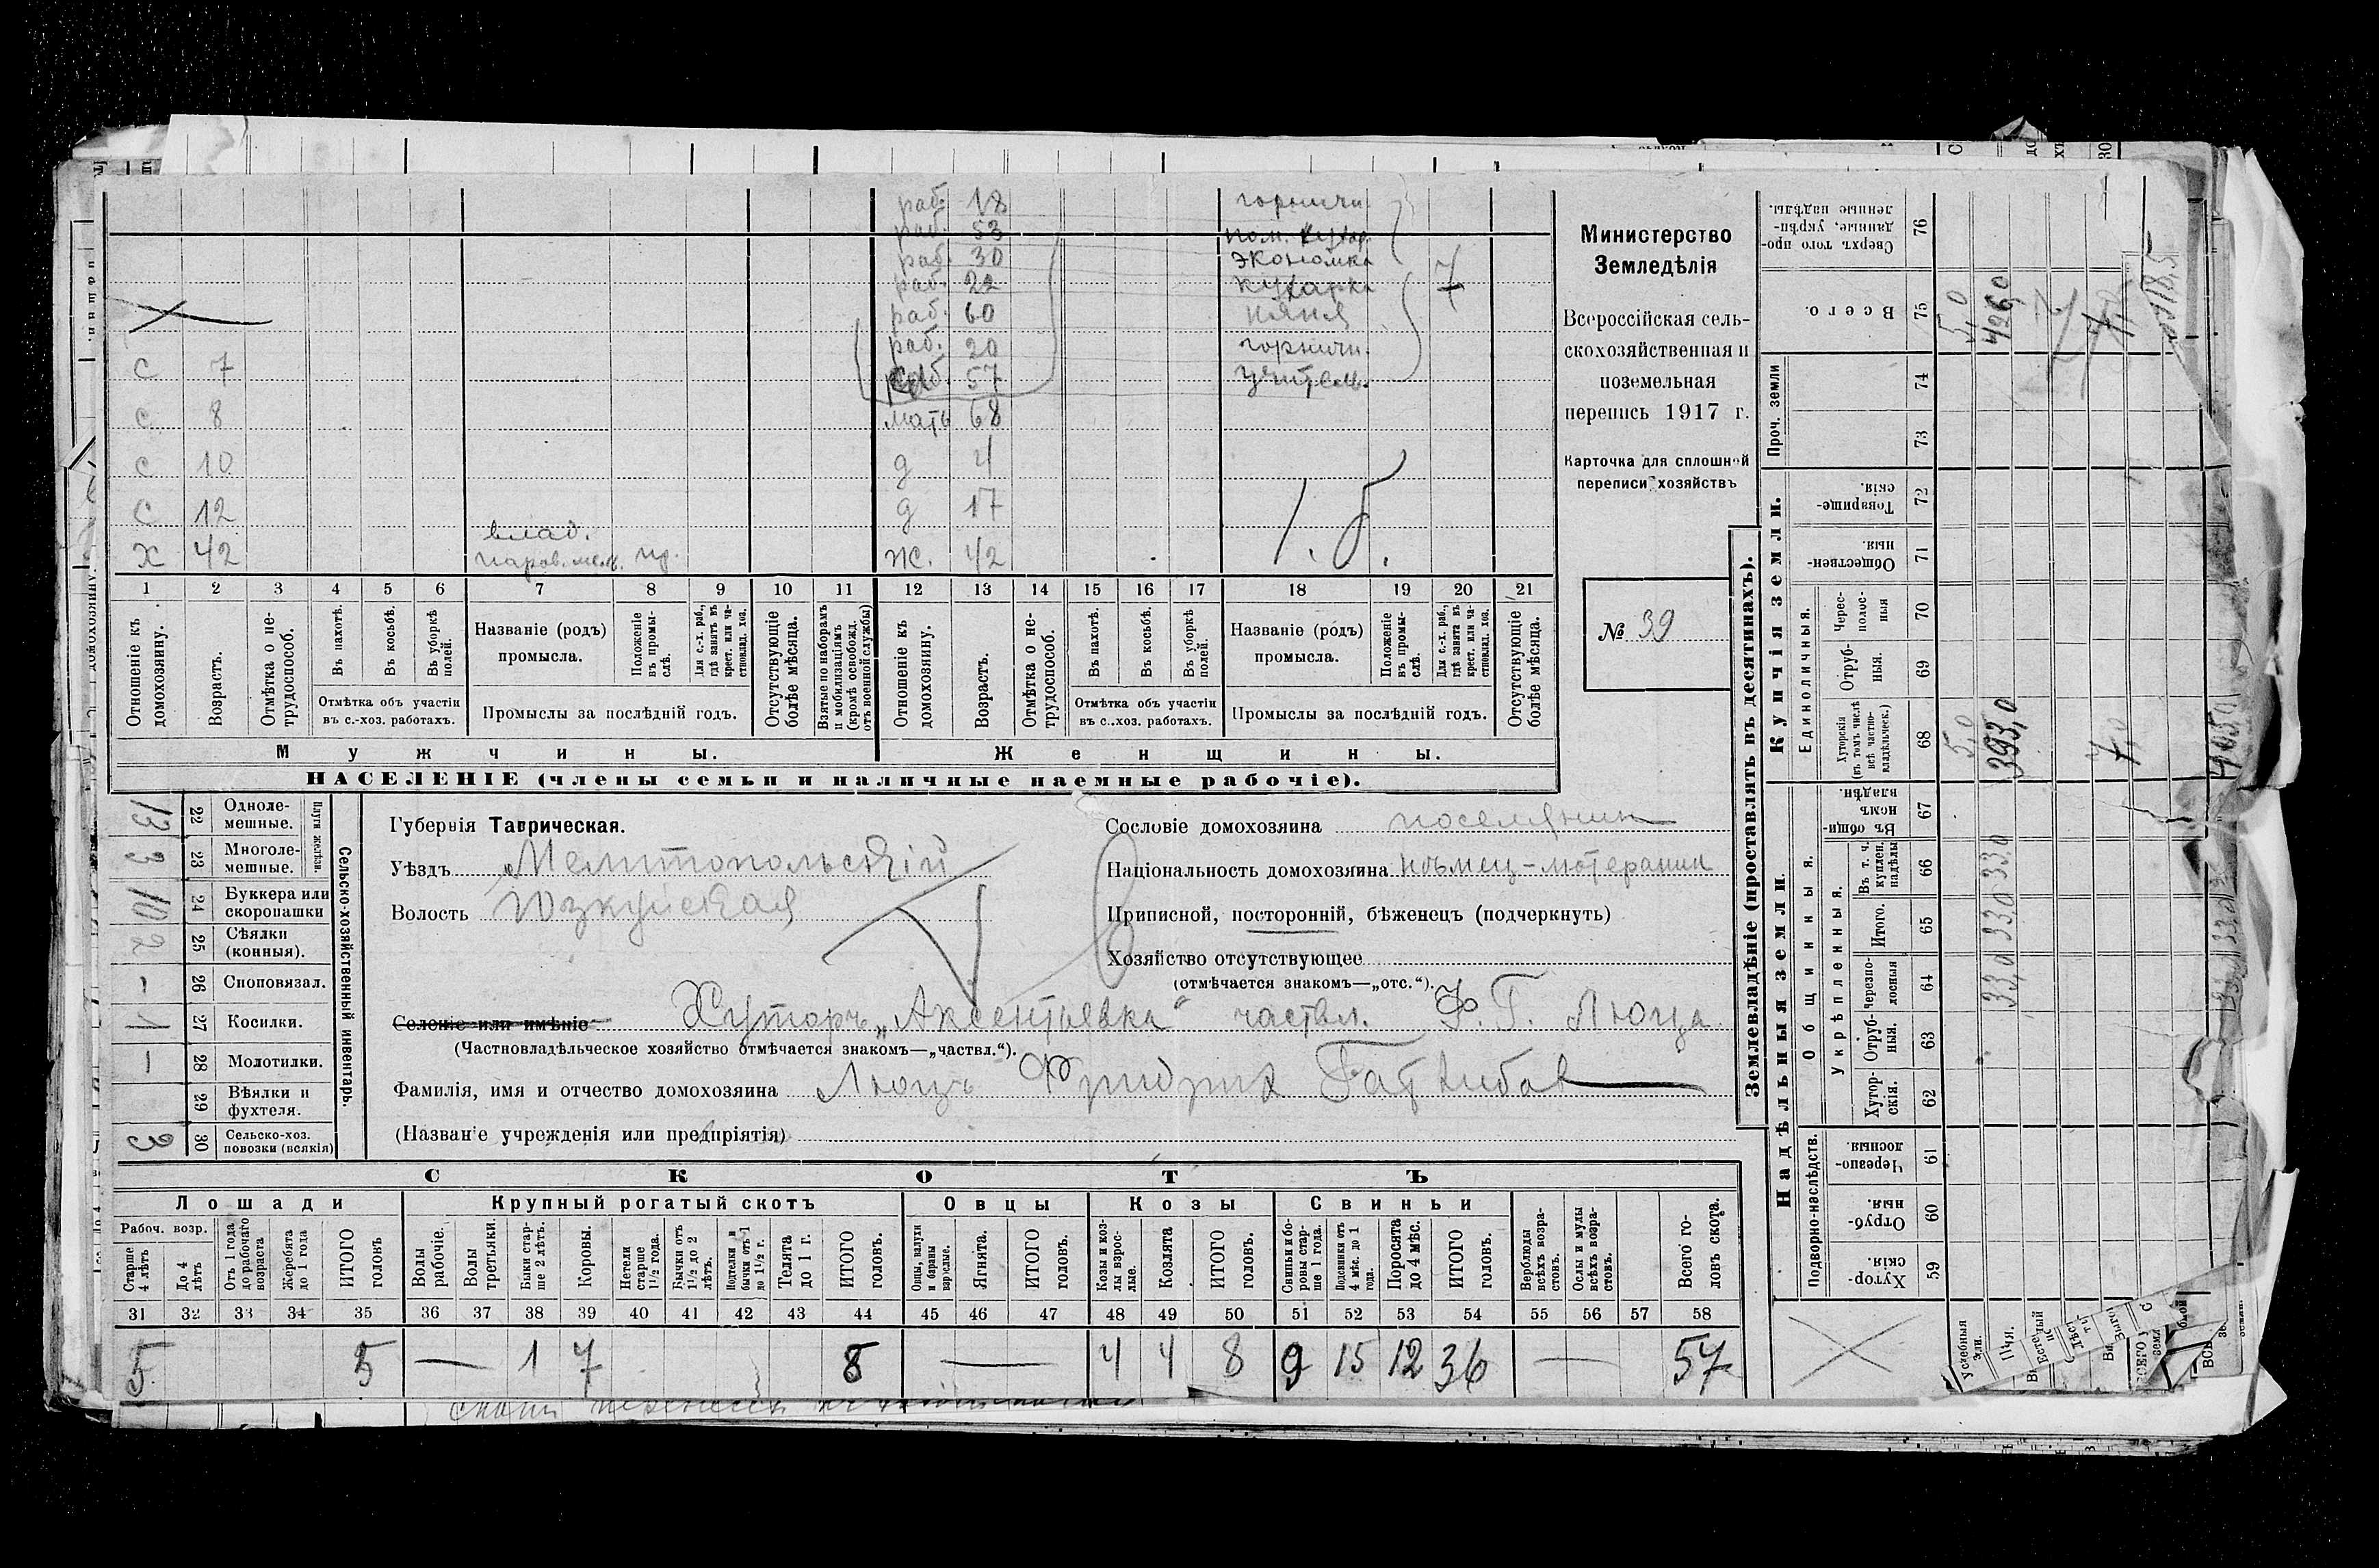 раб. 18 горничн.
раб. 53 пом. кухар.
раб. 30 экономка
раб. 22 кухарка 7
раб. 60 няня
раб. 20 горничн.
С 7 раб. 57 учитель.
С 8 мать 68
С 10 д 4
С 12 д 17
влад.
Х 42 паров. мел. Ж. 42
1 2 3 4 5 6 7 8 9 10 11 12 13 14 15 16 17 18 19 20 21
Отношеніе къ домохозяину.
Возрастъ.
Отмѣтка о не-трудоспособ.
Въ пахотѣ.
Въ косьбѣ.
Въ уборкѣ полей.
Отмѣтка объ участіи
въ с.-хоз. работахъ.
Названіе (родъ)
промысла.
Положеніе въ промы-слѣ.
Для с.-х. раб., гдѣ занятъ въ крест. или ча-стновлад. хоз.
Промыслы за послѣдній годъ.
Отсутствующіе болѣе мѣсяца.
Взятые по наборамъ и мобилизаціямъ (кромѣ освобожд. отъ военной службы)
Отношеніе къ домохозяину.
Возрастъ.
Отмѣтка о не-трудоспособ.
Въ пахотѣ.
Въ косьбѣ.
Въ уборкѣ полей.
Отмѣтка объ участіи
въ с.-хоз. работахъ.
Названіе (родъ)
промысла.
Положеніе въ промы-слѣ.
Для с.-х. раб., гдѣ занята въ крест. или ча-стновлад. хоз.
Промыслы за послѣдній годъ.
Отсутствующіе болѣе мѣсяца.
Мужчины. Женщины.
НАСЕЛЕНІЕ (члены семьи и наличные наемные рабочіе).
Министерство
Земледѣлія
Всероссійская сель-
скохозяйственная и
поземельная
перепись 1917 г.
Карточка для сплошной
переписи хозяйствъ
№ 39
Сельско-хозяйственный инвентарь.
Плуги желѣзн.
13 22 Одноле-мешные.
3 23 Многоле-мешные.
10 24 Буккера или скоропашки
2 25 Сѣялки (конныя).
1 26 Сноповязал.
1 27 Косилки.
1 28 Молотилки.
29 Вѣялки и фухтеля.
3 30 Сельско-хоз. повозки (всякія)
Губернія Таврическая.
Уѣздъ Мелитопольскій
Волость Юзкуйская
Сословіе домохозяина поселянин
Національность домохозяина нѣмец-лютеранин
Приписной, посторонній, бѣженецъ (подчеркнуть)
Хозяйство отсутствующее
(отмѣчается знакомъ—„отс.“).
Селеніе или имѣніе Хуторъ „Аксентьевка“ частвл. Ф. Г. Люца
(Частновладѣльческое хозяйство отмѣчается знакомъ—„частвл.“).
Фамилія, имя и отчество домохозяина Люцъ Фридрих Готлибов
(Названіе учрежденія или предпріятія)
СКОТЪ
Лошади Крупный рогатый скотъ Овцы Козы Свиньи
Рабоч. возр.
Старше 4 лѣтъ
До 4 лѣтъ
Отъ 1 года до рабочаго возраста
Жеребята до 1 года
ИТОГО головъ
Волы рабочіе.
Волы третьяки.
Быки стар-ше 2 лѣтъ.
Коровы.
Нетели старше 1½ года.
Бычки отъ 1½ до 2 лѣтъ.
Нетели и бычки отъ 1 до 1½ г.
Телята до 1 г.
ИТОГО головъ.
Овцы, валухи и бараны взрослые.
Ягнята.
ИТОГО головъ.
Козы и коз-лы взрос-лые.
Козлята
ИТОГО головъ.
Свиньи и бо-ровы стар-ше 1 года.
Подсвинки отъ 4 мѣс. до 1 года.
Поросята до 4 мѣс.
ИТОГО головъ.
Верблюды всѣхъ возра-стовъ.
Ослы и мулы всѣхъ возра-стовъ.
Всего го-ловъ скота.
31 32 33 34 35 36 37 38 39 40 41 42 43 44 45 46 47 48 49 50 51 52 53 54 55 56 57 58
5 5 — 1 7 8 — 4 4 8 9 15 12 36 — 57
Землевладѣніе (проставлять въ десятинахъ).
Купчія земли.
Надѣльныя земли.
Сверхъ того про-данные, укрѣп-ленные надѣлы. 76
Всего. 75 5,0 426,0
Проч. земли 74 73
Товарище-скія. 72
Обществен-ныя. 71
Единоличныя.
Черес-полос-ныя 70
Отруб-ныя. 69
Хуторскія (въ томъ числѣ всѣ частно-владѣльческ.) 68 5,0 393,0 7,0
Общинныя.
Въ общи-номъ владѣн. 67
Укрѣпленныя.
Въ т. ч. куплен. надѣлы 66 33,0
Итого. 65 33,0
Черезпо-лосныя 64 33,0
Отруб-ныя. 63
Хутор-скія. 62
Подворно-наслѣдств.
Черезпо-лосныя. 61
Отруб-ныя. 60
Хутор-скія. 59